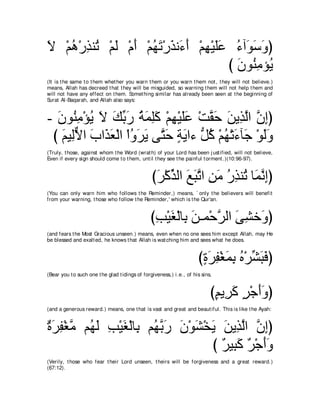 (وَسَوَآءُ عَلَيْهِمْ أَءَنذَرْتَهُمْ أَمْ لَمْ تُنذِرْهُمْ لاَ
يُؤْمِنُونَ )
(It is the same to them whether you warn them or you warn them not, they will not believe.)
means, Allah has decreed that they will be misguided, so warning them will not help them and
will not have any effect on them. Something similar has already been seen at the beginning of
Surat Al-Baqarah, and Allah also says:
(إِنَّ الَّذِينَ حَقَّتْ عَلَيْهِمْ كَلِمَةُ رَبِّكَ لاَ يُؤْمِنُونَ -
وَلَوْ جَآءَتْهُمْ كُلُّ ءايَةٍ حَتَّى يَرَوُاْ الْعَذَابَ الاٌّلِيمَ )
(Truly, those, against whom the Word (wrath) of your Lord has been justified, will not believe,
Even if every sign should come to them, until they see the painful torment.)(10:96-97).
(إِنَّمَا تُنذِرُ مَنِ اتَّبَعَ الذِّكْرَ)
(You can only warn him who follows the Reminder,) means, `only the believers will benefit
from your warning, those who follow the Reminder,' which is the Qur'an.
(وَخشِىَ الرَّحْمـنَ بِالْغَيْبِ)
(and fears the Most Gracious unseen.) means, even when no one sees him except Allah, may He
be blessed and exalted, he knows that Allah is watching him and sees what he does.
(فَبَشِّرْهُ بِمَغْفِرَةٍ)
(Bear you to such one the glad tidings of forgiveness,) i.e., of his sins,
(وَأَجْرٍ كَرِيمٍ)
(and a generous reward.) means, one that is vast and great and beautiful. This is like the Ayah:
(إِنَّ الَّذِينَ يَخْشَوْنَ رَبَّهُم بِالْغَيْبِ لَهُم مَّغْفِرَةٌ
وَأَجْرٌ كَبِيرٌ )
(Verily, those who fear their Lord unseen, theirs will be forgiveness and a great reward.)
(67:12).